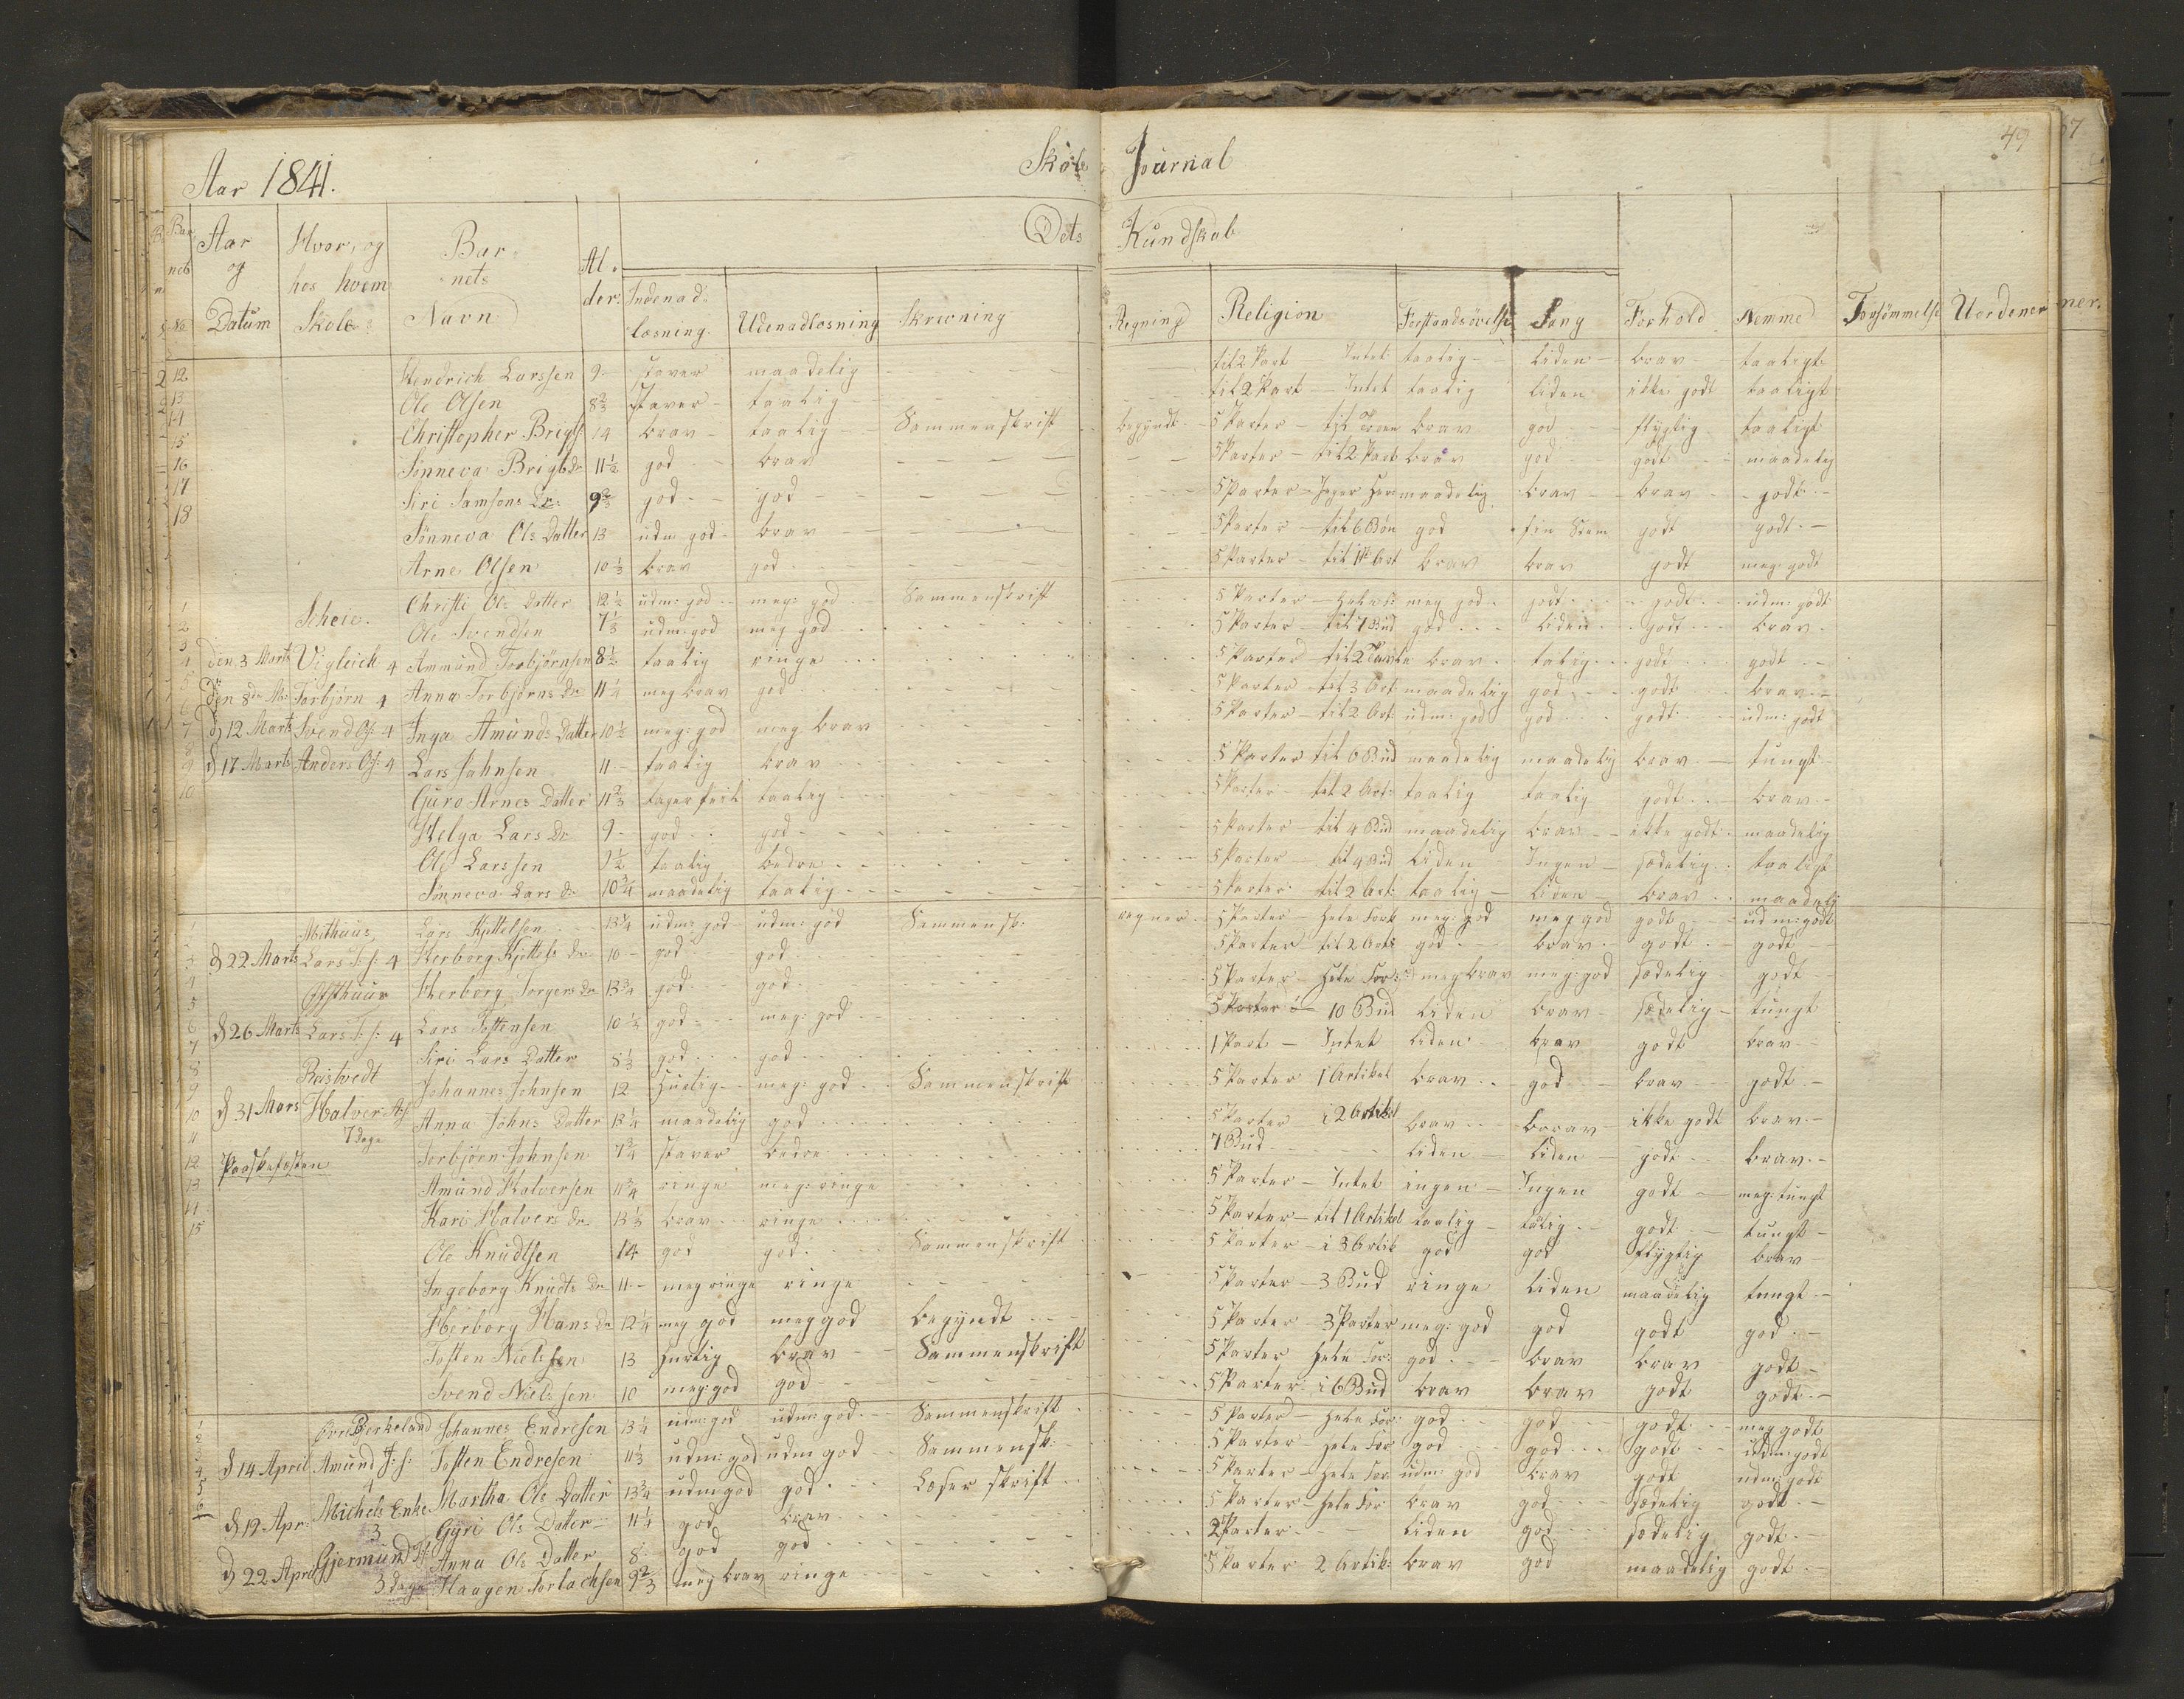 Aar 1841. Skole Journal 49 67
Barnets No Aar og Datum Hvor, og hos hvem Skole Barnets Navn Alder. Dets Kundskab
Indenadlæsning. Udenadlæsning Skrivning Regning Religion Forstandsövelse Sang Forhold Nemme Forsömmelse Uordener
12 Hendrich Larssen 9 staver maadelig til 2 Part Intet taalig liden brav taaligt
13 Ole Olsen 8 2/3 staver taalig til 2 Part Intet taalig liden ikke godt taaligt
14 Christopher Brigts 14 brav taalig Sammenskrift begyndt 5 Parter til Troen brav god flygtig taaligt
15 Sønneva Brigts Dr 11 1/2 god brav 5 Parter til 2 Part brav god godt maadelig
16 Siri Samsons Dr 9 2/3 god god 5 Parter maadelig brav brav godt
17 Sønneva Ols Datter 13 udm: god brav 5 Parter til 6 Bön god fin Stem godt godt
18 Arne Olsen 10 1/3 brav god 5 Parter til 1te Art brav brav godt meg: godt
1 Christi Ols Datter 12 1/2 udm: god meg: god Sammenskrift 5 Parter meg god godt godt udm: godt
2 Scheie. Ole Svendsen 7 1/3 udm: god meg god 5 Parter til 7 Bud god liden godt brav
3 den 3 Marts Vigleich 4 Ammund Torbjørnsen 8 1/2 taalig ringe 5 Parter til 2 brav talig godt godt
4 den 8de M: Torbjørn 4 Anna Torbjørns Dr 11 1/4 meg brav god 5 Parter til 3 Art maadelig god godt brav
d 12 Marts Svend Ols: 4 Inga Amunds Datter 10 1/2 meg: god meg brav 5 Parter til 2 Art: udm: god god godt udm: godt
d 17 Marts Anders Ols: 4 Lars Jahnsen 11 taalig brav 5 Parter til 6 Bud maadelig maadelig brav tungt
Guro Arnes Datter 11 2/3 tager feil taalig 5 Parter til 2 Art: taalig taalig godt brav
Helga Lars Dr 9 god god 5 Parter til 4 Bud maadelig brav ikke godt maadelig
Ole Larssen 9 1/2 taalig bedre 5 Parter til 4 Bud liden Ingen sædelig taaligt
10 Sønneva Lars Dr 10 3/4 maadelig taalig 5 Parter til 2 Art: taalig liden brav maadelig
1 Mithuus Lars Kjettelsen 13 1/4 udm: god udm: god Sammensk: regner 5 Parter Hele Fork meg: god meg god godt udm: godt
2 d 22 Marts Lars T: s: 4 Herborg Kjettels Dr 10 god god 5 Parter til 2 Art: god brav godt godt
3 Østhuus Herborg Torgers Dr 13 3/4 god god 5 Parter Hele For: meg brav meg: god sædelig godt
4 d 26 Marts Lars T: s: 4 Lars Tostensen 10 1/2 god meg: god 5 Parter 10 Bud liden brav sædelig tungt
5 Siri Lars Datter 8 1/3 god god 1 Part Intet liden brav godt brav
6 Reistvedt Johannes Johnsen 12 Hurtig meg: god Sammenskrift 5 Parter 1 Artikel brav god brav godt
7 d 31 Mars Halver As: 7 dage Anna Johns Datter 13 1/4 maadelig god 5 Parter i 2 Artikel brav brav ikke godt brav
8 Paaskefesten Torbjørn Johnsen 7 3/4 staver bedre 7 Bud liden liden godt brav
9 Amund Halversen 11 3/4 ringe meg: ringe 5 Parter Intet ingen Ingen godt meg: tungt
10 Kari Halvers Dr 13 1/3 brav ringe 5 Parter til 1 Artikel taalig talig godt tungt
11 Ole Knudtsen 14 god god Sammenskrift 5 Parter i 3 Artik god god flygtig brav
12 Ingeborg Knudts Dr 11 meg ringe ringe 5 Parter 3 Bud ringe liden maadelig tungt
13 Herborg Hans Dr 12 1/4 meg god meg god begyndt 5 Parter 3 Parter meg: god god godt god
14 Tosten Nielssen 13 hurtig brav Sammenskrift 5 Parter Hele For: god brav brav godt
15 Svend Nielssen 10 meg: god god 5 Parter i 6 Bud brav brav godt godt
1 Övre Berkeland Johannes Endresen 13 1/4 udm: god udm: god Sammenskrift 5 Parter Hele For: god god godt meg godt
2 d 14 April Amund J: s: 4 Tosten Endresen 11 1/3 udm: god udm god Sammensk: 5 Parter Hele For god god godt udm: godt
3 Michels Enke 3 Martha Ols Datter 13 3/4 udm god god Læser skrift 5 Parter Hele For udm: god brav godt udm: godt
4 d 19 Apr: Gyri Ols Datter 11 1/4 god brav 5 Parter Hele For brav god sædelig godt
5 Gjermund Anna Ols Datter 8 god god 2 Parter liden god sædelig godt
6 d 22 April 3 dage Haagen Torlachsen 9 2/3 meg brav ringe 5 Parter 2 Artik: brav god maadelig godt